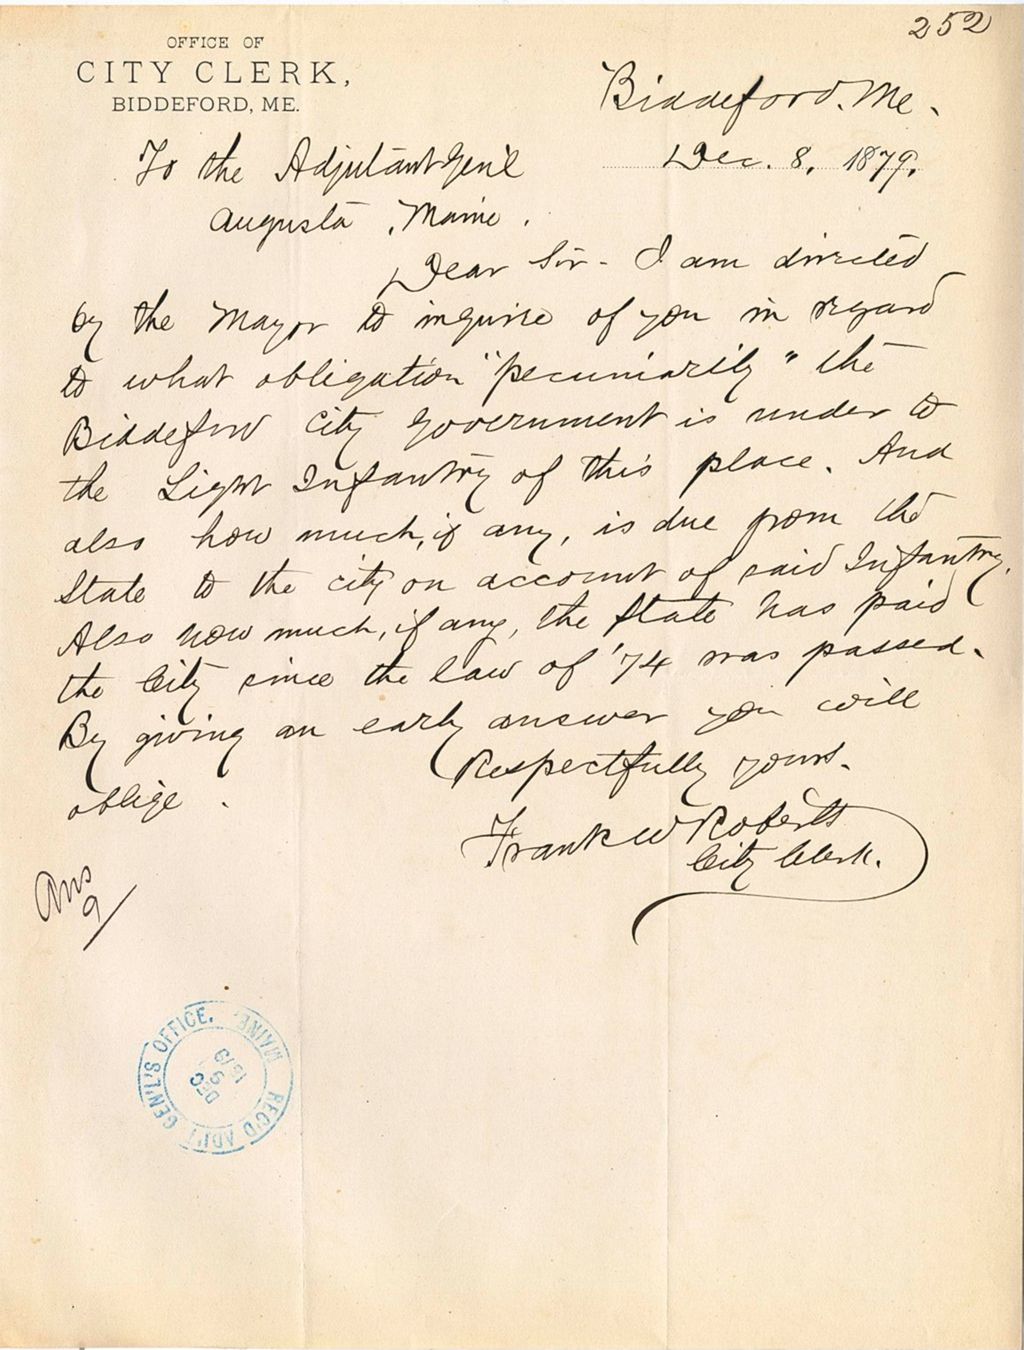 252
OFFICE OF
CITY CLERK,
BIDDEFORD, ME.
Biddeford. Me.
Dec. 8, 1879.
To the Adjutant Gen'l
Augusta, Maine.
Dear Sir - I am directed
by the Mayor to inquire of you in regard
to what obligation "pecuniarily" the
Biddeford City Government is under to
the Light Infantry of this place. And
also how much, if any, is due from the
State to the city on account of said Infantry.
Also how much, if any, the State has paid
the City since the law of '74 was passed.
By giving an early answer you will
oblige.
Respectfully yours.
Frank W Roberts
City Clerk.
Ans
9/
REC'D ADJ'T GEN'L'S OFFICE. MAINE.
DEC
9
1879